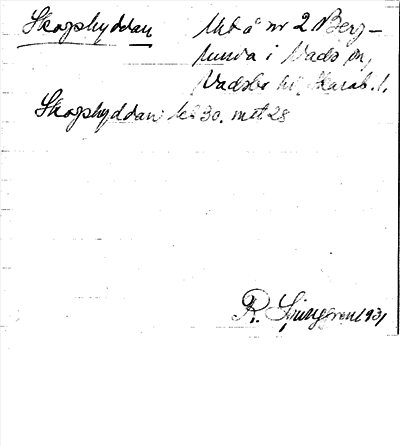 Skogshyddan
Ukt å nr 2 Berg-
lunda i Vads sn,
Vadsbo hd, Skarab. l.
Skogshyddan: kb 30. mtl. 28
R. Ljunggren 1931